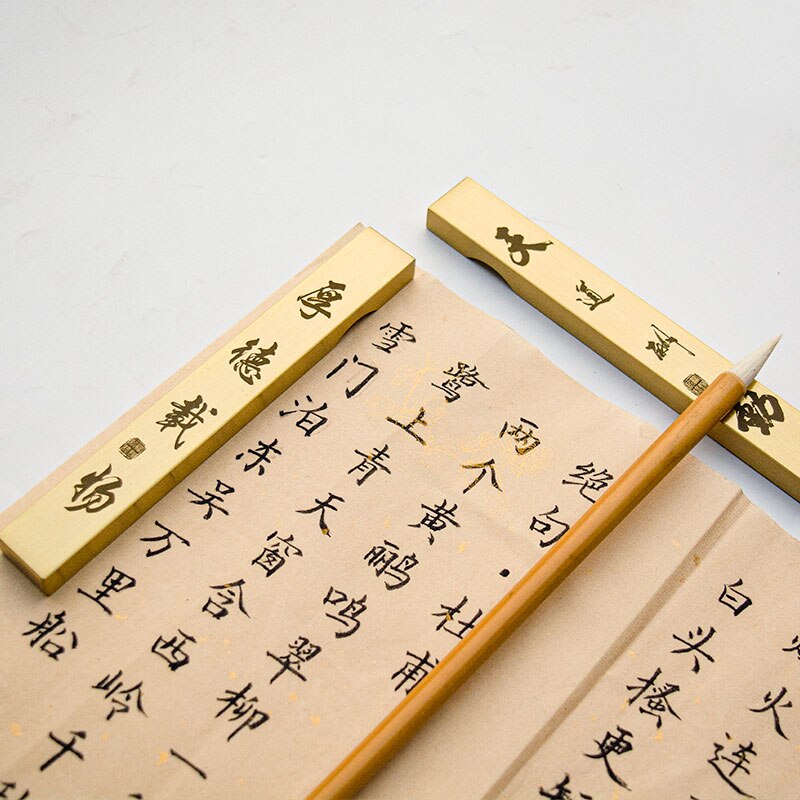 厚德載物
火连
白头搔更
绝句·杜甫
两个黄鹂鸣翠柳一
鹭上青天窗含西岭千
雪门泊东吴万里船